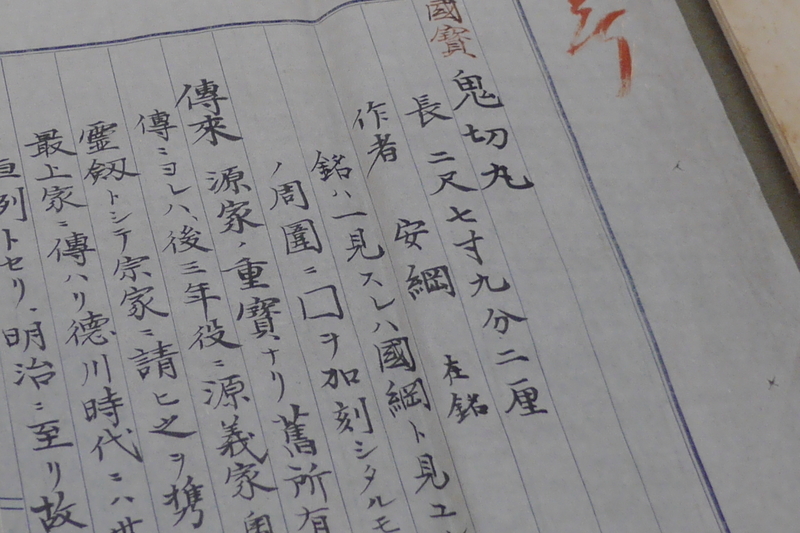 國寶
鬼切丸
長 二尺七寸九分二厘
作者 安綱 在銘
銘ハ一見スレハ國綱ト見ユ
ノ周圍ニ囗ヲ加刻シタルモ
傳來 源家ノ重寶ナリ舊所有
傳ニヨレハ、後三年役ニ源義家奥
霊劔トシテ宗家ニ請ヒ之ヲ携
最上家ニ傳ハリ徳川時代ニハ世
列トセリ、明治ニ至リ故